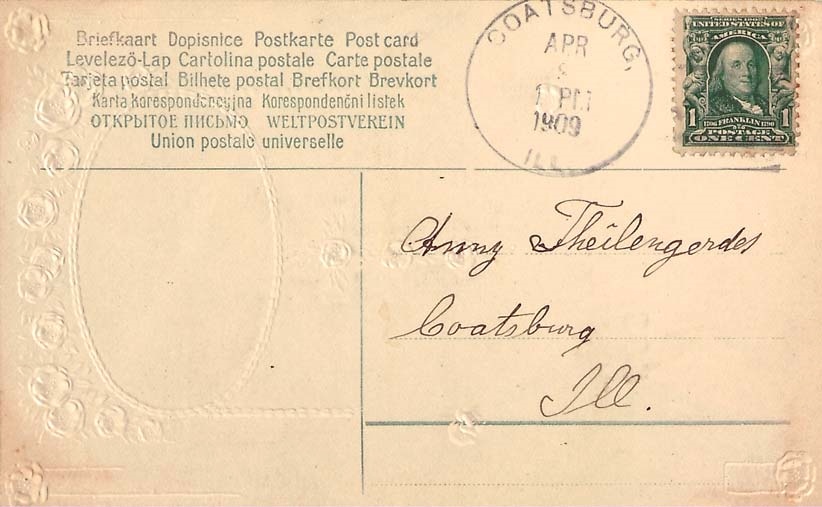 Briefkaart Dopisnice Postkarte Post card
Levelező-Lap Cartolina postale Carte postale
Tarjeta postal Bilhete postal Brefkort Brevkort
Karta korespondencyjna Korespondenční lístek
ОТКРЫТОЕ ПИСЬМО WELTPOSTVEREIN
Union postale universelle
COATSBURG,
APR
PM
1909
ILL.
SERIES 1902
UNITED STATES OF
AMERICA
1 1706 FRANKLIN 1790 1
POSTAGE
ONE CENT
Anny Theilengerdes
Coatsburg
Ill.